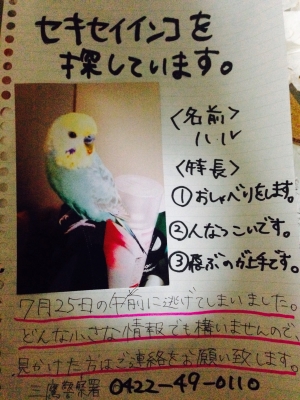 セキセイインコを
探しています。
〈名前〉
ハル
〈特長〉
①おしゃべりをします。
②人なつこいです。
③飛ぶのが上手です。
7月25日の午前に逃げてしまいました。
どんな小さな情報でも構いませんので、
見かけた方はご連絡をお願い致します。
三鷹警察署 0422-49-0110